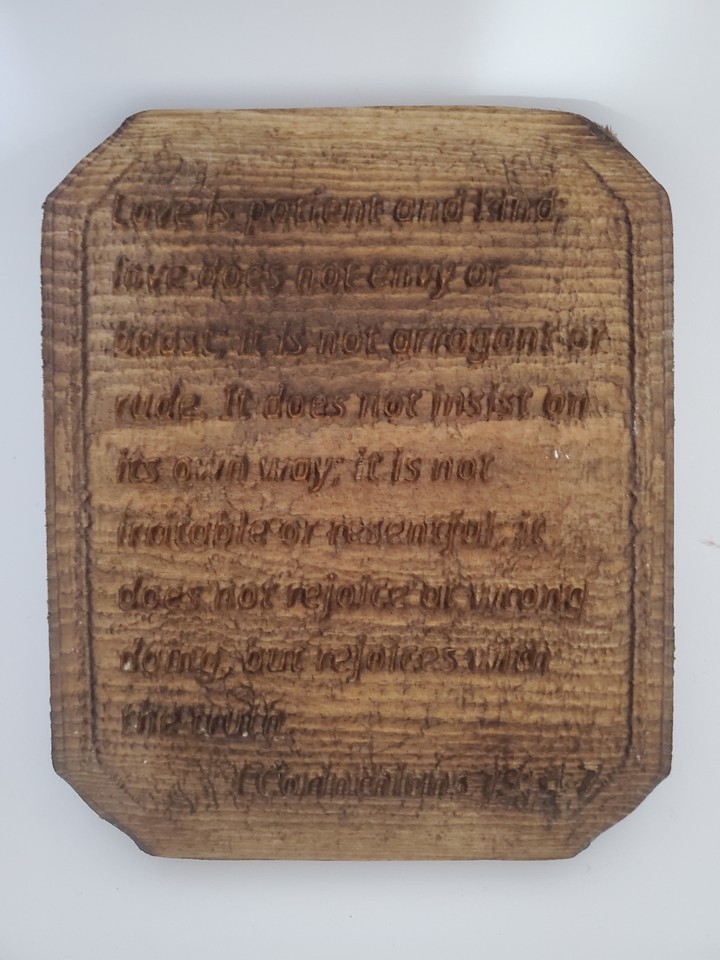 Love is patient and kind;
love does not envy or
boast; it is not arrogant or
rude. It does not insist on
its own way; it is not
irritable or resentful; it
does not rejoice at wrong
doing, but rejoices with
the truth.
1 Corinthians